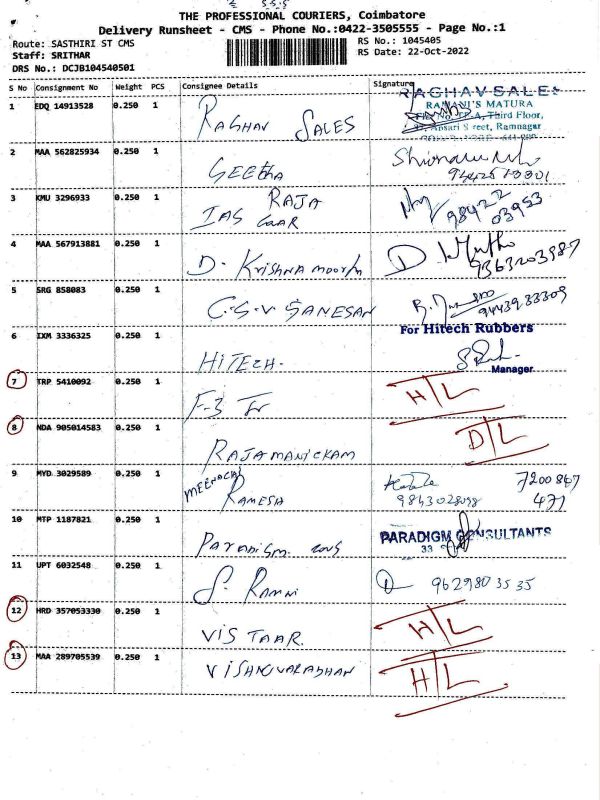 THE PROFESSIONAL COURIERS, Coimbatore
Delivery Runsheet - CMS - Phone No.:0422-3505555 - Page No.:1
Route: SASTHIRI ST CMS
RS No.: 1045405
Staff: SRITHAR
RS Date: 22-Oct-2022
DRS No.: DCJB104540501
S No Consignment No Weight PCS Consignee Details Signature
1 EDQ 14913528 0.250 1 RAGHAV SALES
RAGHAV SALES
RAMANI'S MATURA
Third Floor,
Ansari Street, Ramnagar
2 MAA 562825934 0.250 1 GEEtha
3 KMU 3296933 0.250 1 RAJA
IAS 98422
03953
4 MAA 567913881 0.250 1 D. Krishnamoorthy D. Muthu
9363203987
5 SRG 858083 0.250 1 C.S.V GANESAN
9443933309
6 IXM 3336325 0.250 1 HITECH.
For Hitech Rubbers
Manager
7 TRP 5410092 0.250 1 F-3 H/L
8 NDA 905014583 0.250 1 RAJAMANICKAM D/L
9 MYD 3029589 0.250 1 MEENACHI
RAMESH
7200867
471
10 MTP 1187821 0.250 1 Paradigm. cons
PARADIGM CONSULTANTS
33
11 UPT 6032548 0.250 1 S. Ramni 9629803535
12 HRD 357053330 0.250 1 VISTAAR. H/L
13 MAA 289705539 0.250 1 VISHNUVARADHAN H/L